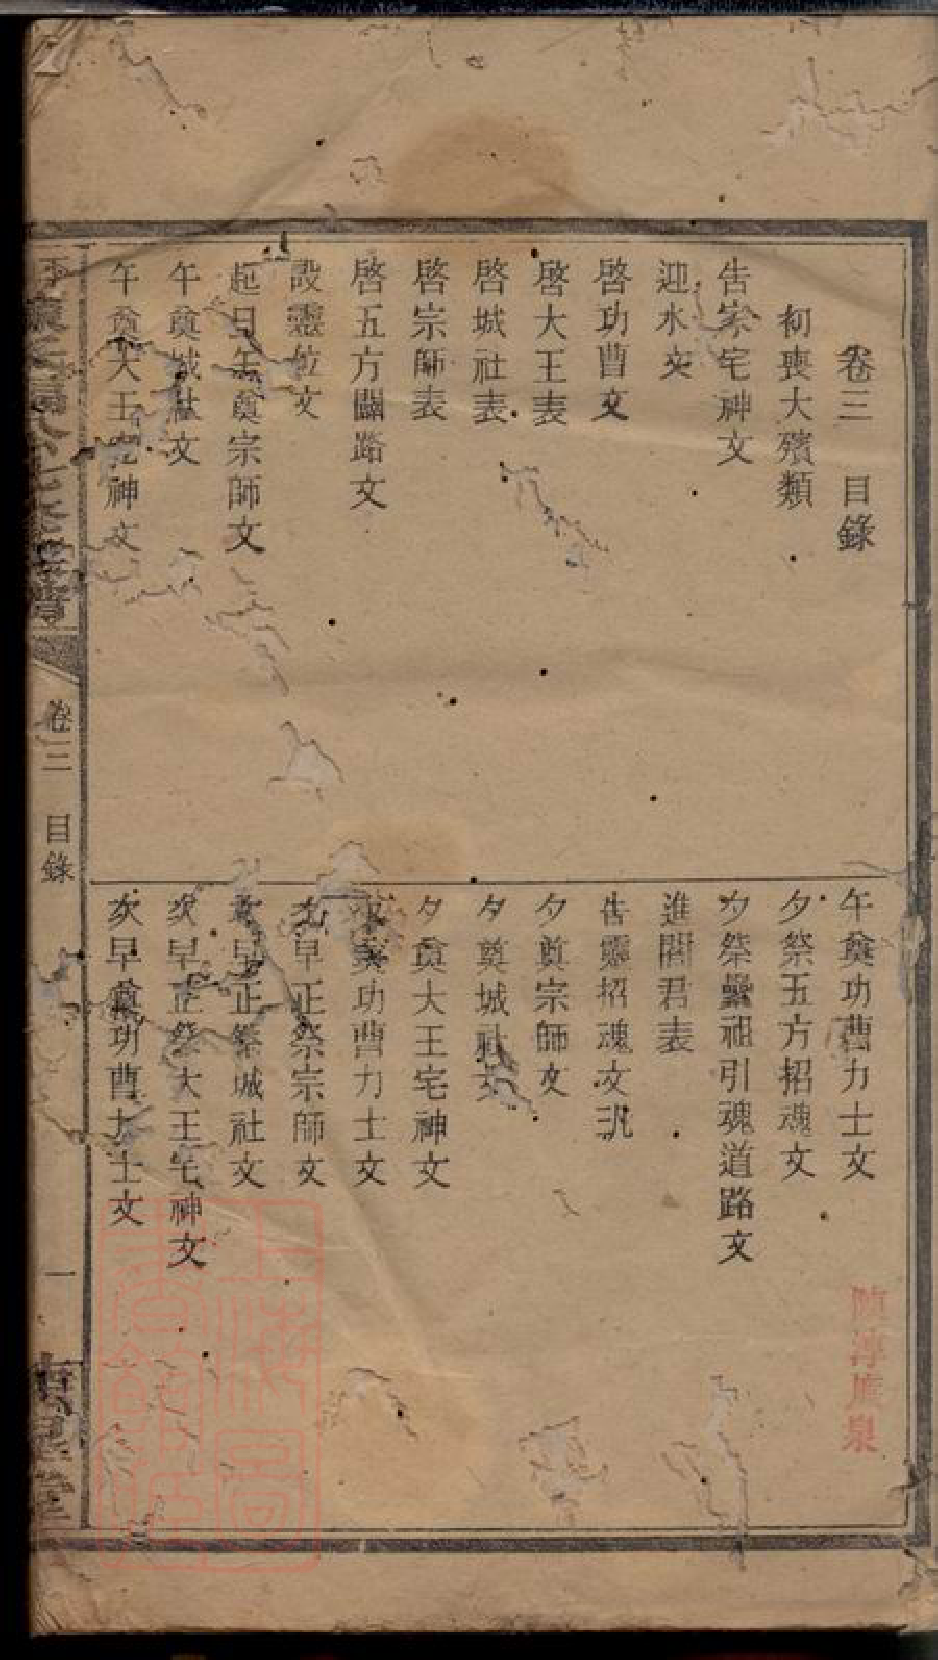 卷三 目錄
初喪大殯類
告家宅神文
迎水文
啓功曹文
啓大王表
啓城社表
啓宗師表
啓五方開路文
設靈位文
起日午奠宗師文
午奠城社文
午奠大王宅神文
午奠功曹力士文
夕祭五方招魂文
夕祭 祖引魂道路文
進閻君表
告靈招魂文
夕奠宗師文
夕奠城社文
夕奠大王宅神文
夕奠功曹力士文
次早正祭宗師文
次早正祭城社文
次早正祭大王宅神文
次早奠功曹力士文
卷三 目錄
一
上海圖書館藏